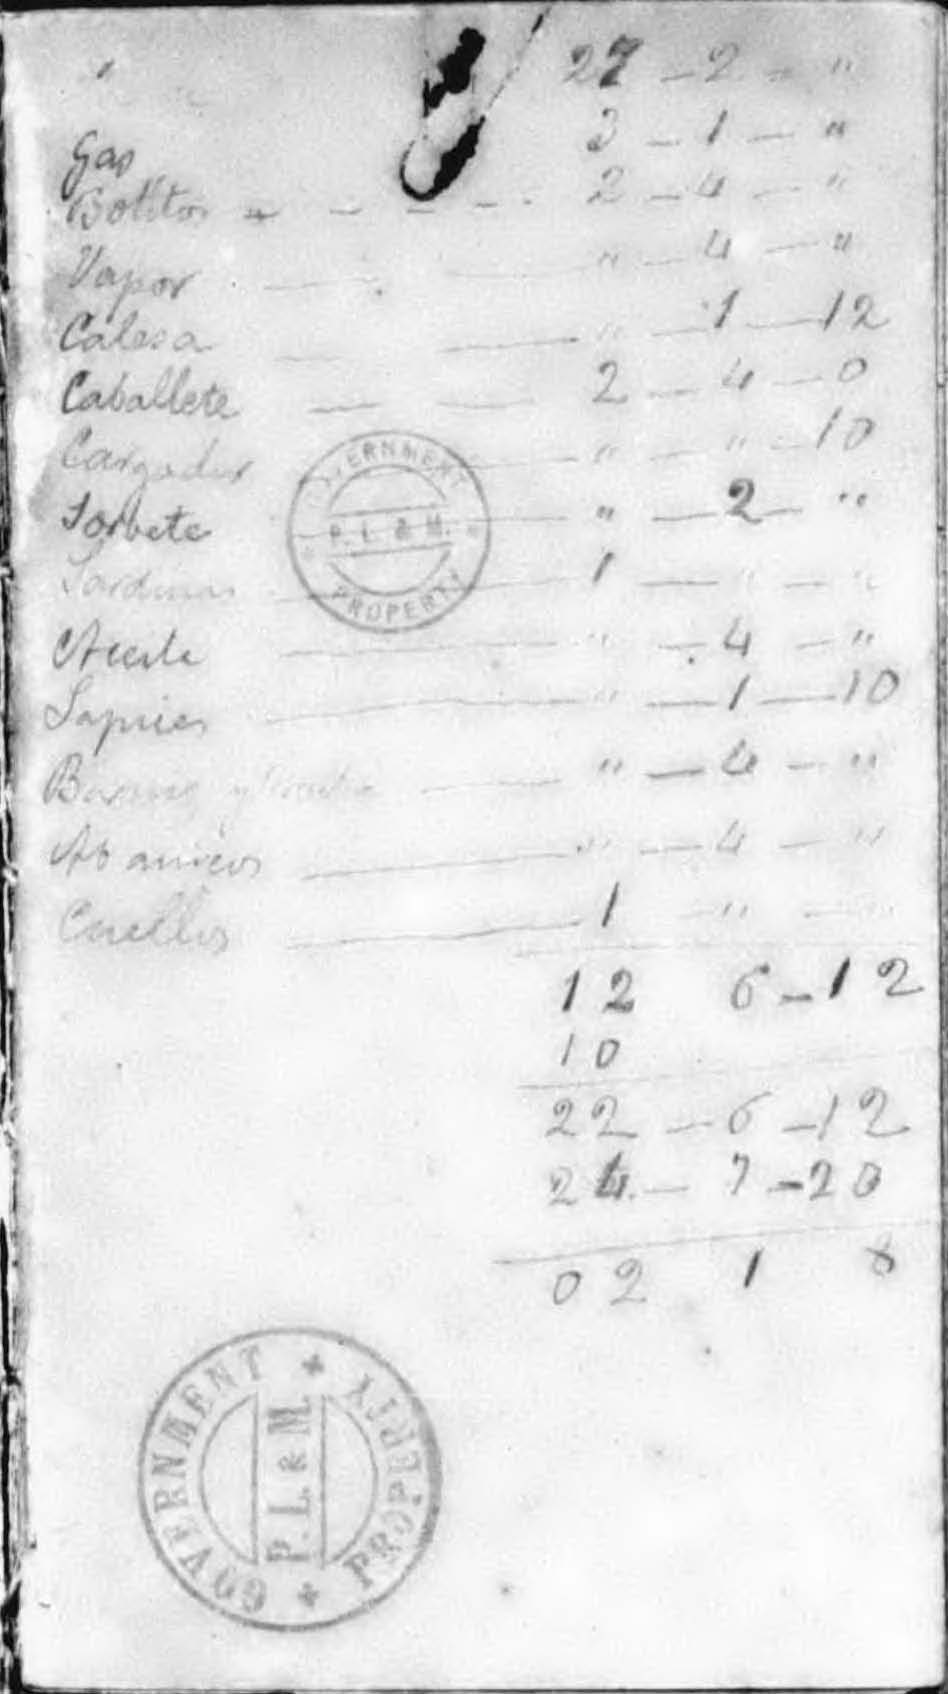 " 27 - 2 - "
Gas 3 - 1 - "
Botitos - - - - - 2 - 4 - "
Vapor — — " - 4 - "
Calesa — — " - 1 - 12
Caballete — — 2 - 4 - 0
Cargador — " - " - 10
Sorbete — " - 2 - "
Sardinas — 1 - " - "
Aceite — " - 4 - "
Lapices — " - 1 - 10
— " - 4 - "
Abanicos — " - 4 - "
Cuellos — 1 " - "
12 6 - 12
10
22 - 6 - 12
24 - 7 - 20
02 1 8
GOVERNMENT PROPERTY
P. L. & M.
GOVERNMENT * PROPERTY *
P. L. & M.